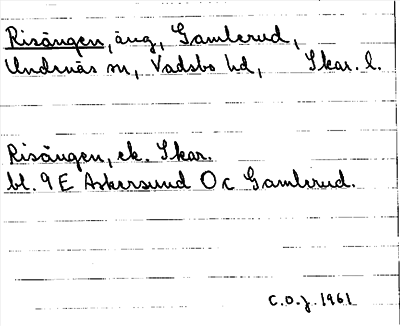 Risängen, äng, Gamlerud,
Undenäs sn, Vadsbo hd, Skar. l.
Risängen, ek. Skar.
bl. 9 E Askersund Oc Gamlerud.
C.O.J. 1961